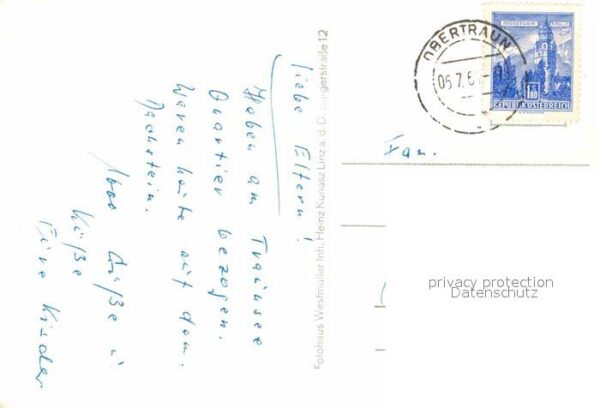 Liebe Eltern!
Haben am Traunsee
Quartier bezogen.
Waren heute auf dem
Dachstein.
1000 Grüße u
Küße
Eure Kinder
Fotohaus Westmüller Inh. Heinz Kunasz Linz a. d. D. Bürgerstraße 12
OBERTRAUN
06.7.6
MÜNZTURM HALL I. T.
1.80
REPUBLIK ÖSTERREICH
Fam.
privacy protection
Datenschutz